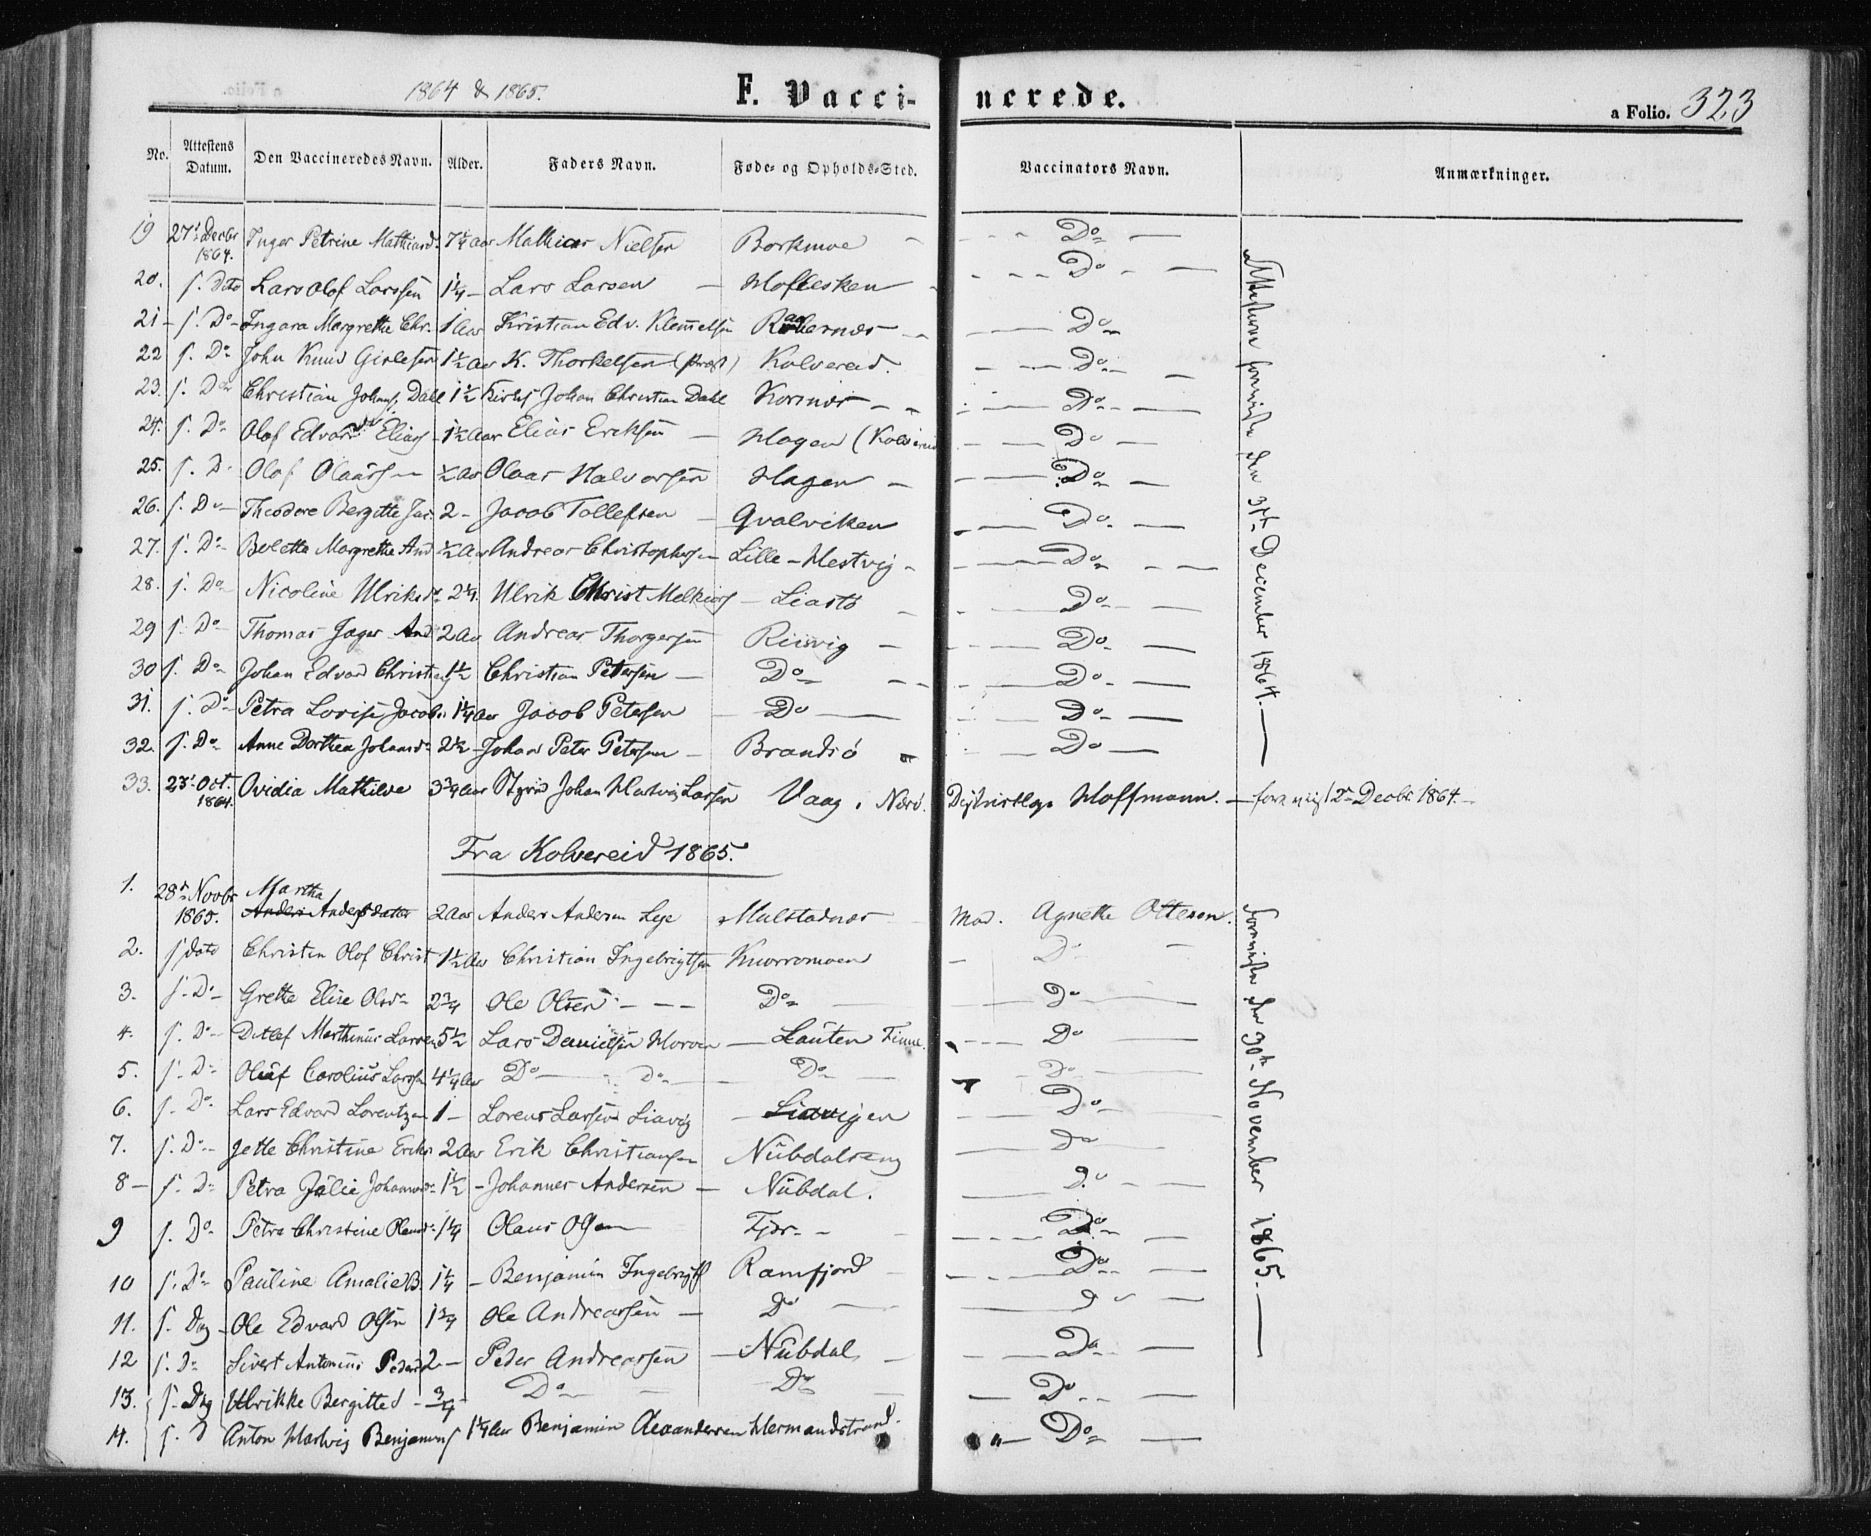 1864 & 1865.
F. Vaccinerede.
a Folio. 323
No. Attestens Datum. Den Vaccineredes Navn. Alder. Faders Navn. Føde- og Opholds-Sted. Vaccinators Navn. Anmærkninger.
19 27' Decbr 1864. Inger Petrine Mathiasd. 7 1/4 aar Mathias Nielsen Borkmoe Do
20. s. Dato Lars Olof Larssen 1 1/4 Lars Larsen Hoflesken Do
21 s. Do Ingara Margrethe Chr. 1 aar Kristian Edv. Klemetsen Do
22 s. Do John Knud Gislesen 1 1/2 aar K. Thorkelsen (Præst) Kolvereid. Do
23. s. Do Christian Johans. Dahl 1 1/2 Johan Christian Dahl Kornæs Do
24. s. Do Olof Edvard Elias 1 1/2 aar Elias Eriksen Hagen (Kolvereid Do
25. s. D. Olof Olaussen 1/2 aar Olaus Halvorsen Hagen Do
26. s. Do Theodore Bergitte Jac. 2 Jacob Tollefsen Qvalviken Do
27. s. Do Bolette Margrethe And 1/2 aar Andreas Christophersen Lille-Hestvig Do
28. s. Do Nicoline Ulriksd. 2 1/4. Ulrik Christ Melkiors Liastø Do
29 s. Do Thomas Jæger And 2 aar Andreas Thorgersen Riisvig Do
30 s. Do Johan Edvard Christians 1 1/2 Christian Petersen Do Do
31. s. Do Petra Lovise Jacobs. 1 1/4 aar Jacob Petersen Do Do
32. s. Do Anne Dorthea Johansd. 2 1/2 Johan Peter Petersen Brandsø Do
Attesterne foreviste den 31te December 1864.
33. 23' Oct. 1864. Ovidia Mathilde 3 3/4 aar Johan Hartvig Larsen Vaag i Nærø. Distriktlæge Hoffmann. forevist 2n Decbr. 1864.
Fra Kolvereid 1865.
1. 28de Novbr 1865. Martha Andersdatter 2 aar Anders Andersen Leje Mulstadnæs Mad. Agnethe Ottesen.
2. s dato Christen Olof Christ 1 1/2 aar Christian Ingebrigtsen Knorromoen Do
3. s. Do Grethe Elise Olsdr 2 3/4 Ole Olsen Do Do
4. s. Do Detlef Marthinus Larsen 5 1/2 Lars Danielsen Horven Lauten Finne. Do
5. s. Do Olaf Carolius Larsen 4 1/4 aar Do Do Do Do
6. s. Do Lars Edvard Lorentzen 1 Lorens Larsen Liavig Liavigen Do
7. s. Do Jette Christine Eriks 2 aar Erik Christiansen Nubdalseng Do
8 s. Do Petra Julie Johannesd. 1 1/2 Johannes Andersen Nubdal. Do
9 s. Do Petra Christine Olausd. 1 1/4 Olaus Olsen Fjær Do
10 s. Do Pauline Amalie B. 1 1/4 Benjamin Ingebrigts Ramfjord Do
11. s. Dag Ole Edvard Olsen 1 3/4 Ole Andreassen Do Do
12 s. Do Sivert Antonius Peders 2 Peder Andreassen Nubdal Do
13. s. Dag Ulrikke Bergitte d 3/4 Do Do Do
14. s. d Anton Hartvig Benjamins 1 1/4 aar Benjamin Alexandersen Hermandstrand. Do
Foreviste den 30te November 1865.